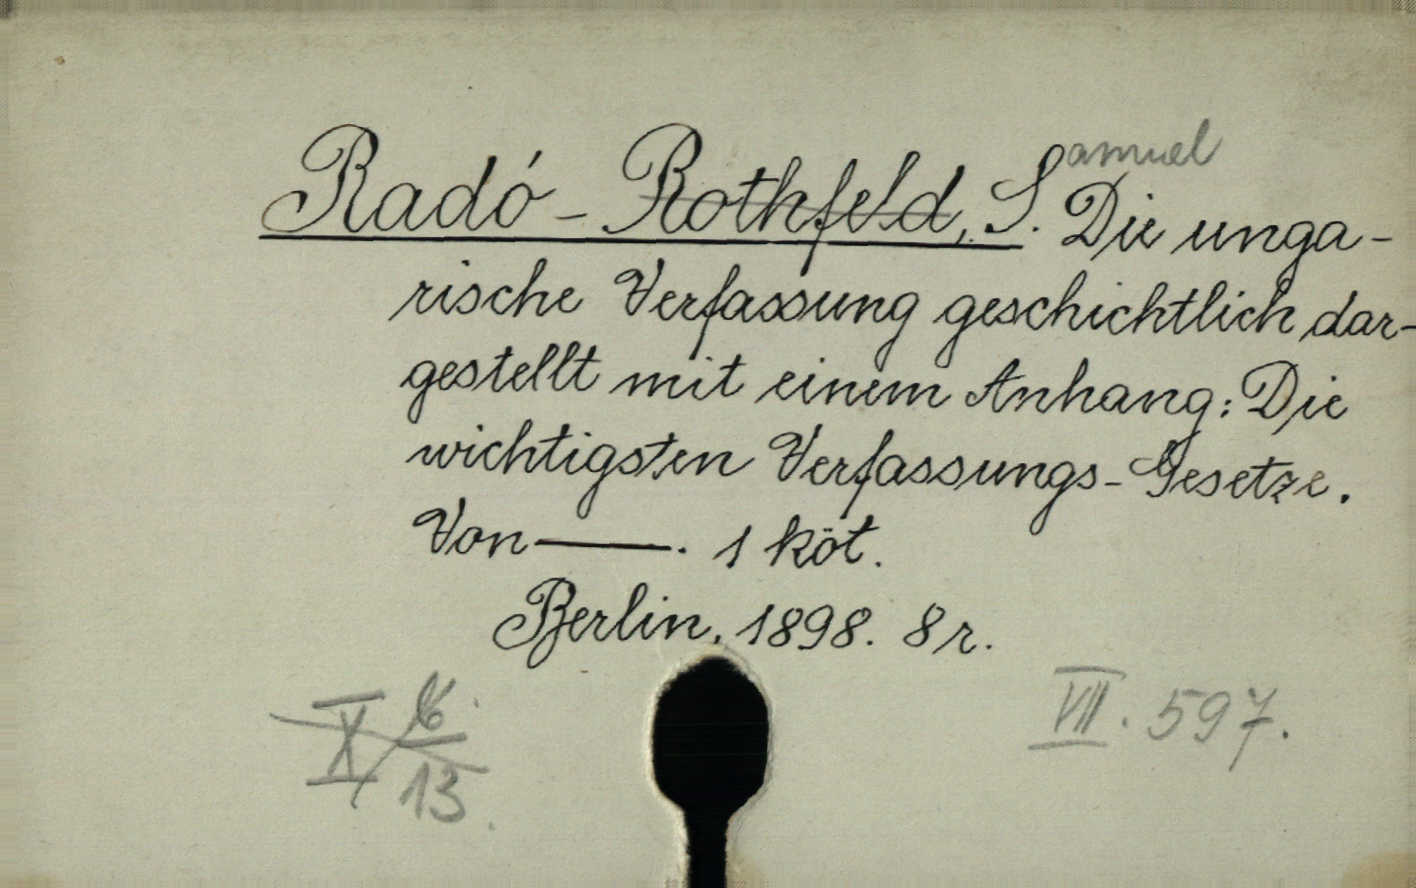 Radó - Rothfeld, Samuel Die unga-
rische Verfassung geschichtlich dar-
gestellt mit einem Anhang: Die
wichtigsten Verfassungs-Gesetze.
Von ——. 1 köt.
Berlin, 1898. 8 r.
X 6.
13.
VII. 597.